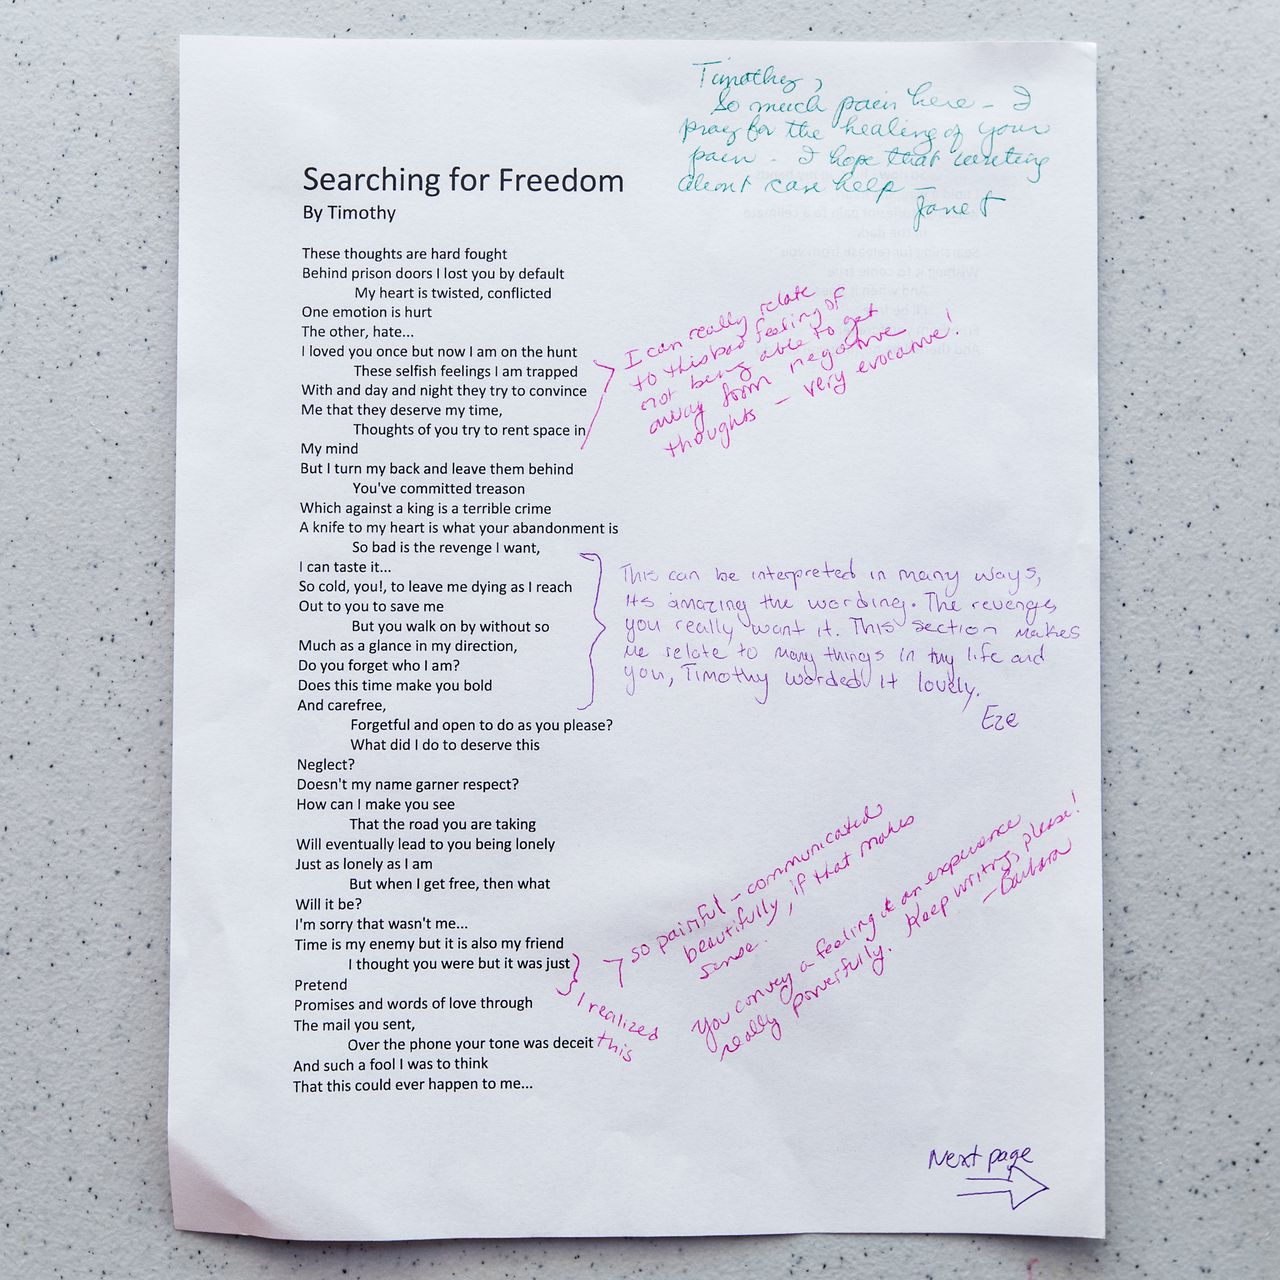 Timothy,
So much pain here – I
pray for the healing of your
pain – I hope that writing
about can help –
Janet
Searching for Freedom
By Timothy
These thoughts are hard fought
Behind prison doors I lost you by default
My heart is twisted, conflicted
One emotion is hurt
The other, hate...
I loved you once but now I am on the hunt
These selfish feelings I am trapped
With and day and night they try to convince
Me that they deserve my time,
Thoughts of you try to rent space in
My mind
But I turn my back and leave them behind
You've committed treason
Which against a king is a terrible crime
A knife to my heart is what your abandonment is
So bad is the revenge I want,
I can taste it...
So cold, you!, to leave me dying as I reach
Out to you to save me
But you walk on by without so
Much as a glance in my direction,
Do you forget who I am?
Does this time make you bold
And carefree,
Forgetful and open to do as you please?
What did I do to deserve this
Neglect?
Doesn't my name garner respect?
How can I make you see
That the road you are taking
Will eventually lead to you being lonely
Just as lonely as I am
But when I get free, then what
Will it be?
I'm sorry that wasn't me...
Time is my enemy but it is also my friend
I thought you were but it was just
Pretend
Promises and words of love through
The mail you sent,
Over the phone your tone was deceit
And such a fool I was to think
That this could ever happen to me...
I can really relate
to this bad feeling of
not being able to get
away form negative
thoughts – very evocative!
This can be interpreted in many ways,
Its amazing the wording. The revenge,
you really want it. This section makes
me relate to many things in my life and
you, Timothy worded it lovely.
Eze
so painful – communicated
beautifully, if that makes
sense.
I realized
this
You convey a feeling & an experience
really powerfully. Keep writing, please!
– Barbara
Next page